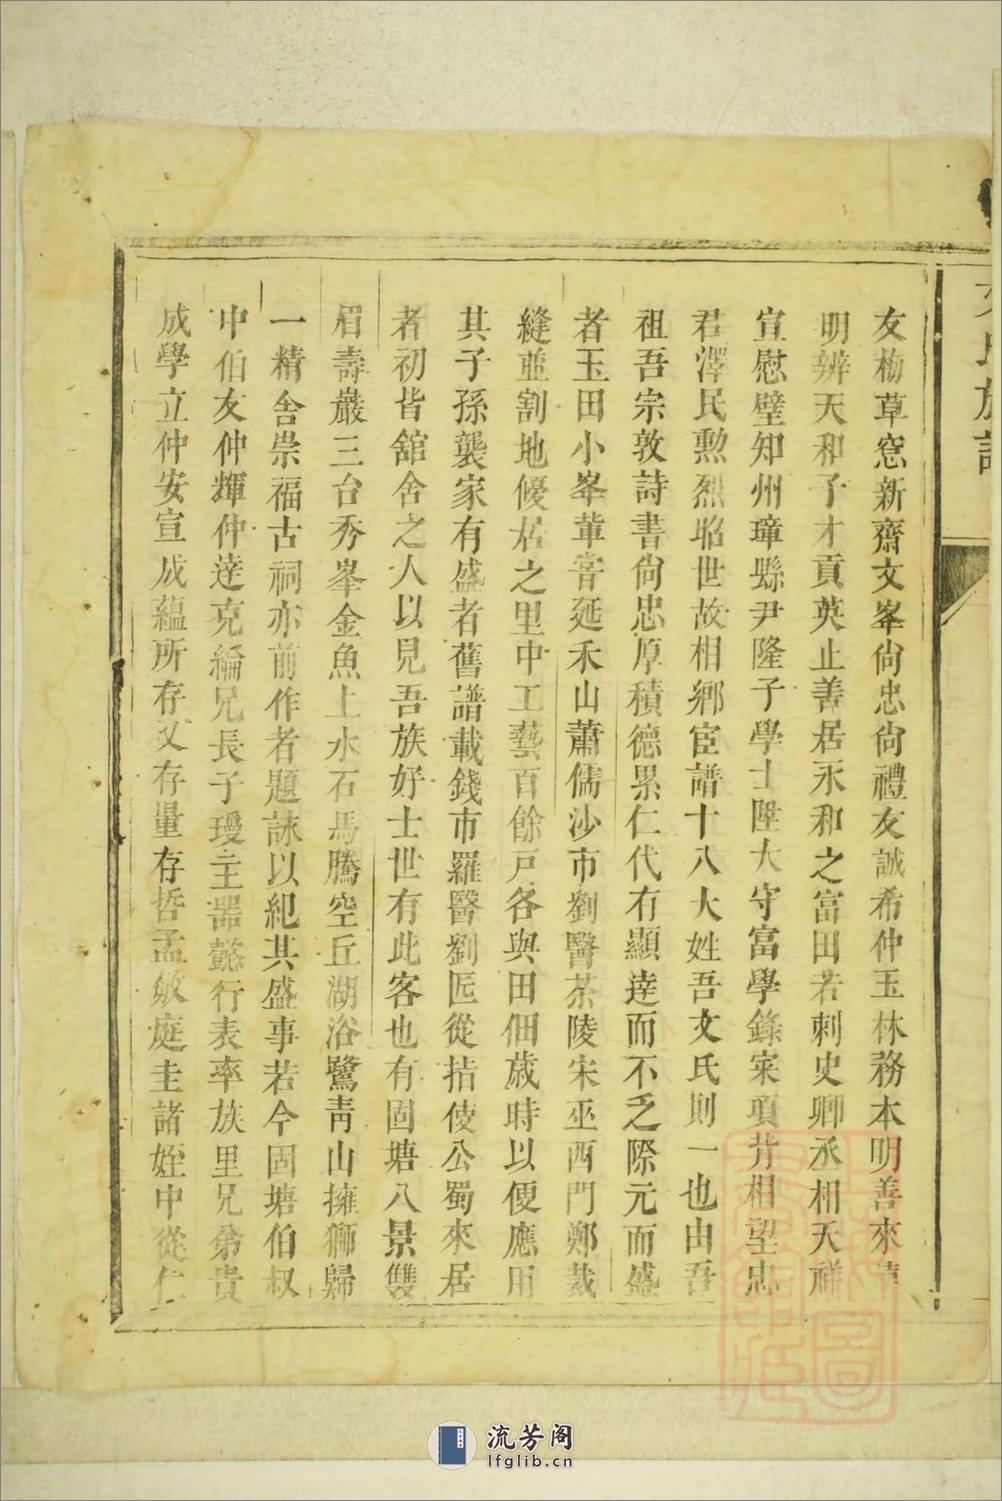 文氏族譜
友梅草窓新齋文峯尙忠尙禮友誠希仲玉林務本明善來清
明辨天和子才貢英止善居永和之富田若刺史卿丞相天祥
宣慰璧知州璋縣尹隆子學士陞大守富學錄寀項背相望忠
君澤民勲烈昭世故相鄕宦譜十八大姓吾文氏則一也由吾
祖吾宗敦詩書尙忠厚積德累仁代有顯達而不乏際元而盛
者玉田小峯葦窨延禾山蕭儒沙市劉醫茶陵宋巫西門鄭裁
縫並割地優居之里中工藝百餘戸各與田佃歲時以便應用
其子孫襲家有盛者舊譜載錢市羅醫劉匠從括使公蜀來居
者初皆舘舍之人以見吾族好士世有此客也有固塘八景雙
眉壽巖三台秀峯金魚上水石馬騰空丘湖浴鷺靑山擁獅歸
一精舍崇福古祠亦前作者題詠以紀其盛事若今固塘伯叔
中伯友仲輝仲達克綸兄長子璦主噐懿行表率族里兄弟貴
成學立仲安宣成蘊所存义存量存哲孟敏庭圭諸姪中從仁
流芳阁
lfglib.cn